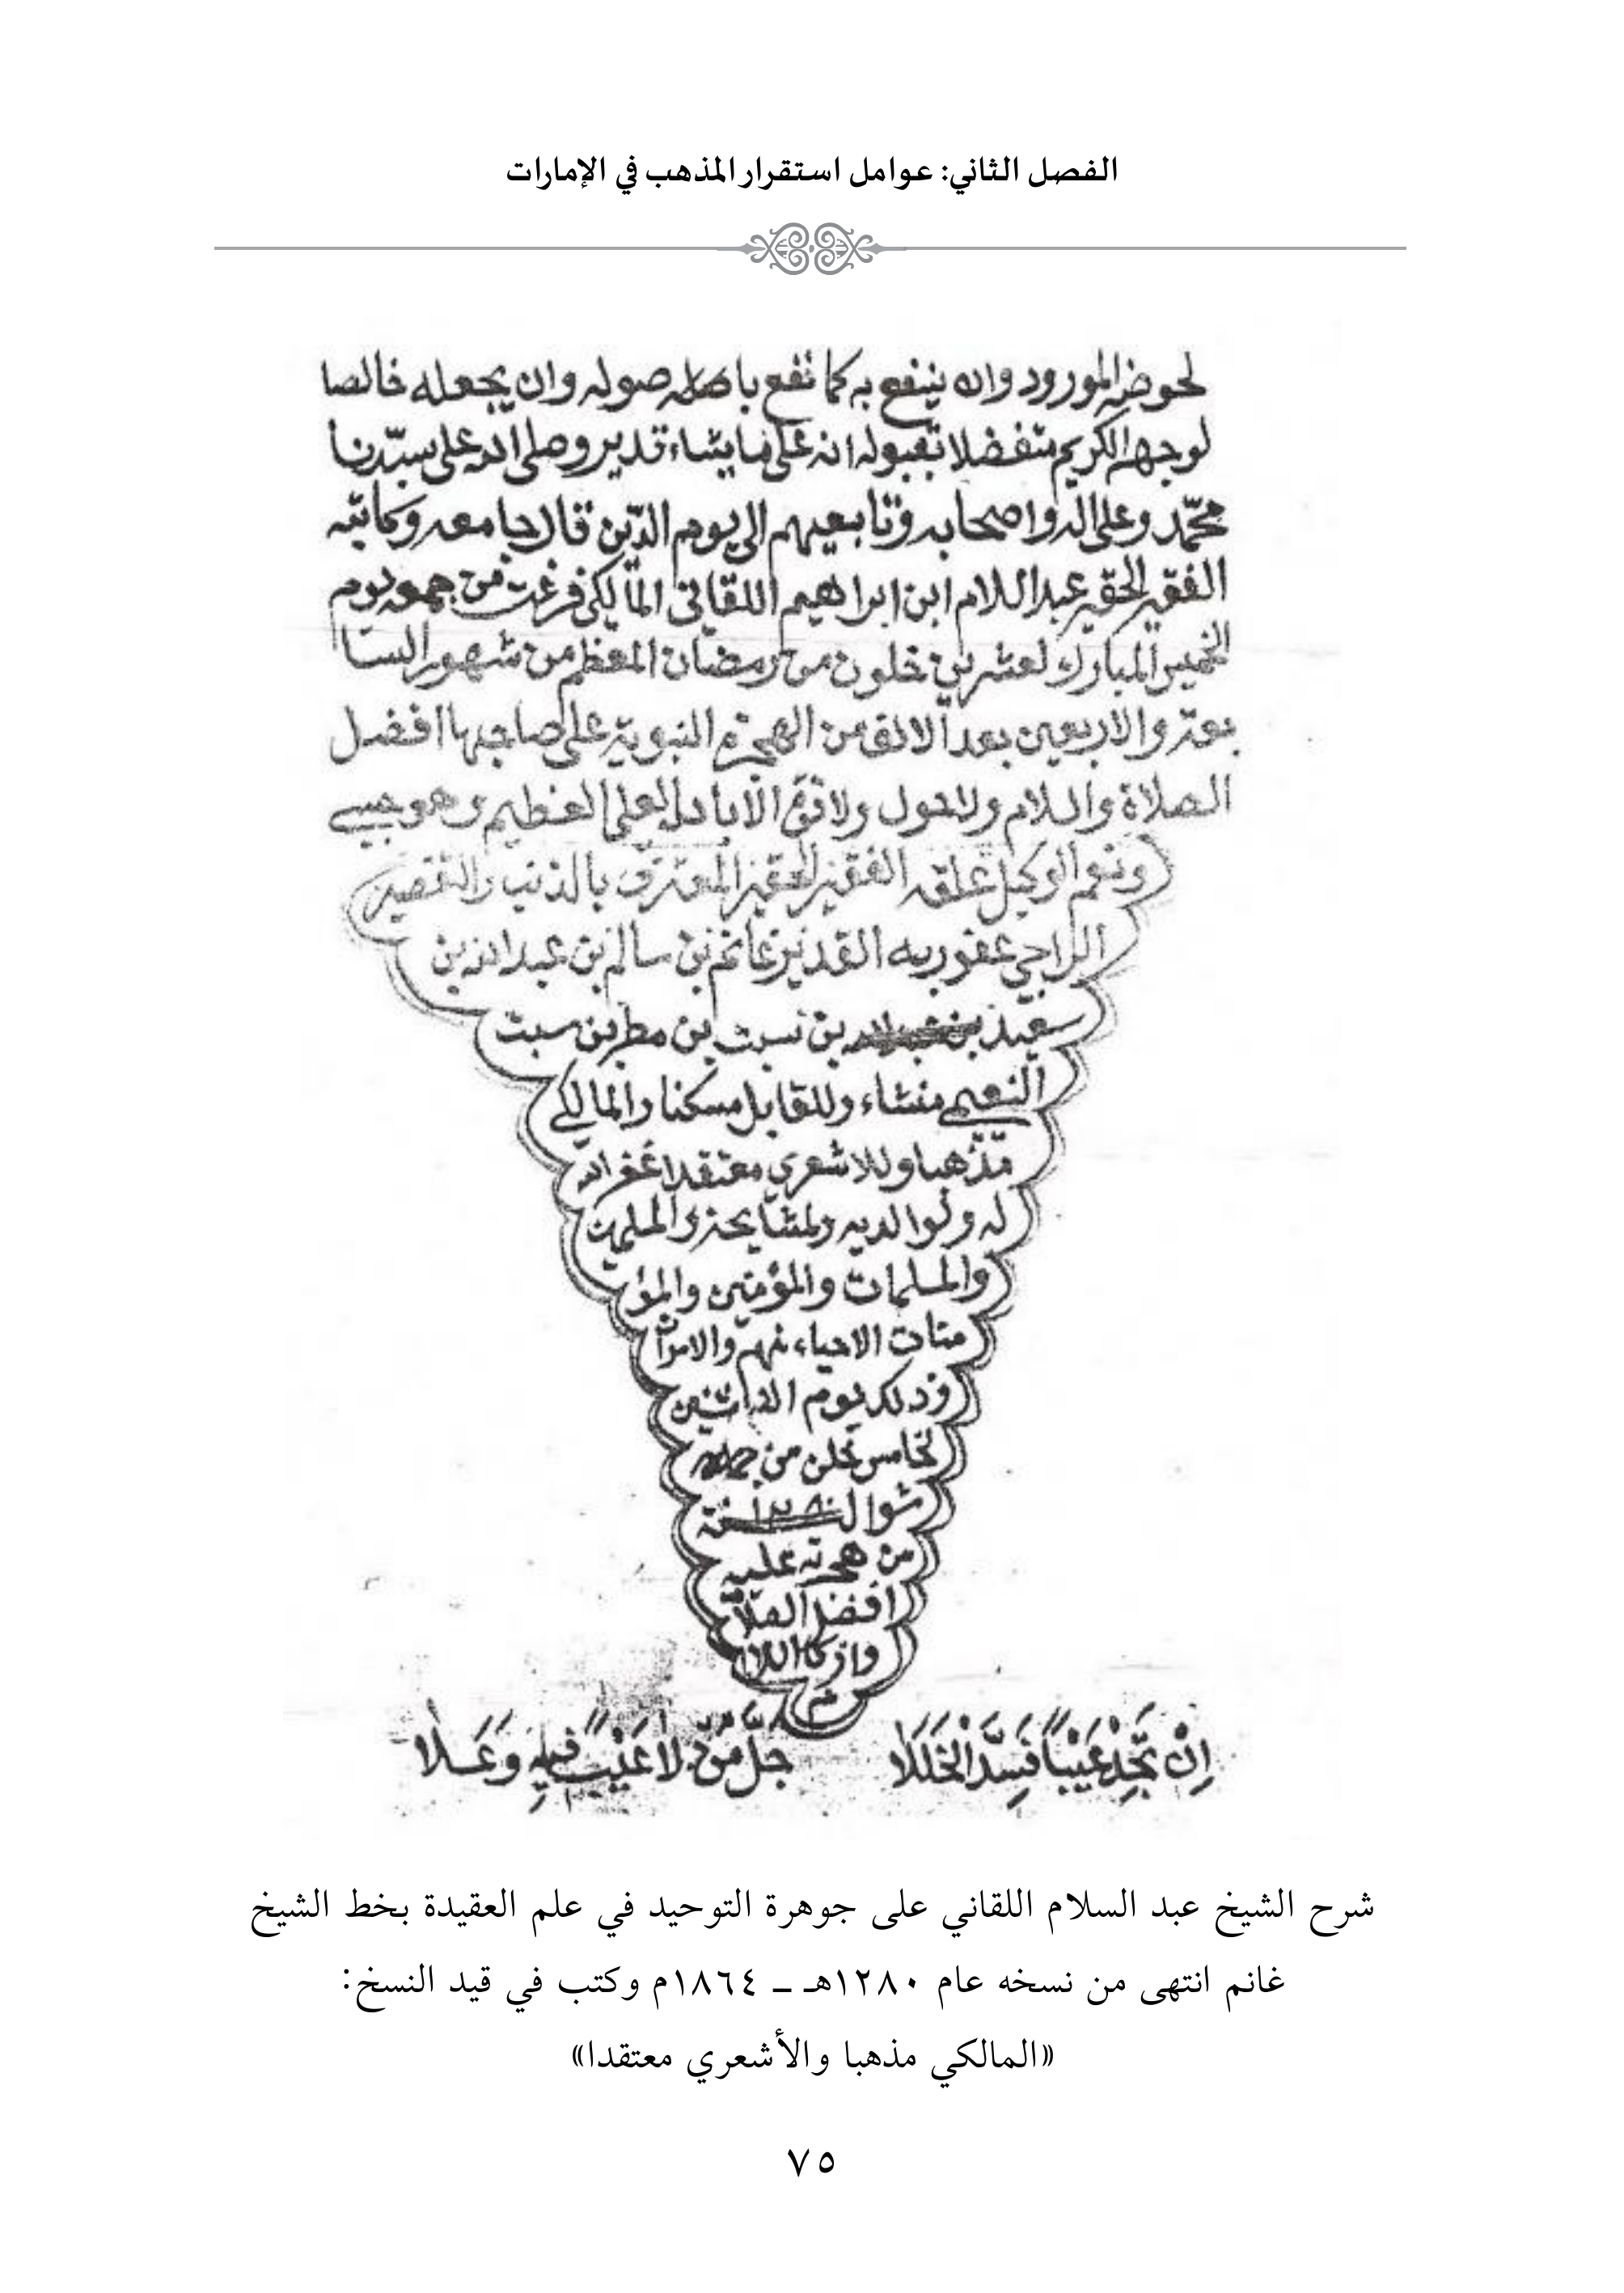 الفصل الثاني: عوامل استقرار المذهب في الإمارات
لحوضه المورود وان ينفع به كما نفع باصله صوله وان يجعله خالصا
لوجهه الكريم متفضلا بقبوله انه على ما يشاء قدير وصلى الله على سيّدنا
محمّد وعلى اله واصحابه وتابعيهم الى يوم الدّين قال جامعه وكاتبه
الفقير الحقير عبد السلام ابن ابراهيم اللقاني المالكي فرغت من جمعه يوم
الخميس المبارك لعشرين خلون من رمضان المعظم من شهور السا
بعة والاربعين بعد الالف من الهجرة النبوية على صاحبها افضل
الصلاة والسلام ولا حول ولا قوة الا بالله العلي العظيم وهو حسبي
ونعم الوكيل علقه الفقير الحقير المعترف بالذنب والتقصير
الراجي عفو ربه القدير غانم بن سالم بن عبد الله بن
سعيد بن نسيت بن مطر بن سبت
النعيمي منشاء وللقابل مسكنا والمالكي
مذهبا وللاشعري معتقدا غفر الله
له ولوالديه ولمشايخه والمسلمين
والمسلمات والمؤمنين والمؤ
منات الاحياء منهم والاموات
وذلك يوم الاثنين
لخامس خلن من
شوال سنة ١٢٨٠
من هجرته عليه
افضل الصلاة
وازكا السلام
تم
اِنْ تَجِدْ عَيْبًا فَسِدَّ الْخَلَلَا جَلَّ مَنْ لَا عَيْبَ فِيهِ وَعَلَا
شرح الشيخ عبد السلام اللقاني على جوهرة التوحيد في علم العقيدة بخط الشيخ
غانم انتهى من نسخه عام ١٢٨٠هـ ــ ١٨٦٤م وكتب في قيد النسخ:
«المالكي مذهبا والأشعري معتقدا»
٧٥